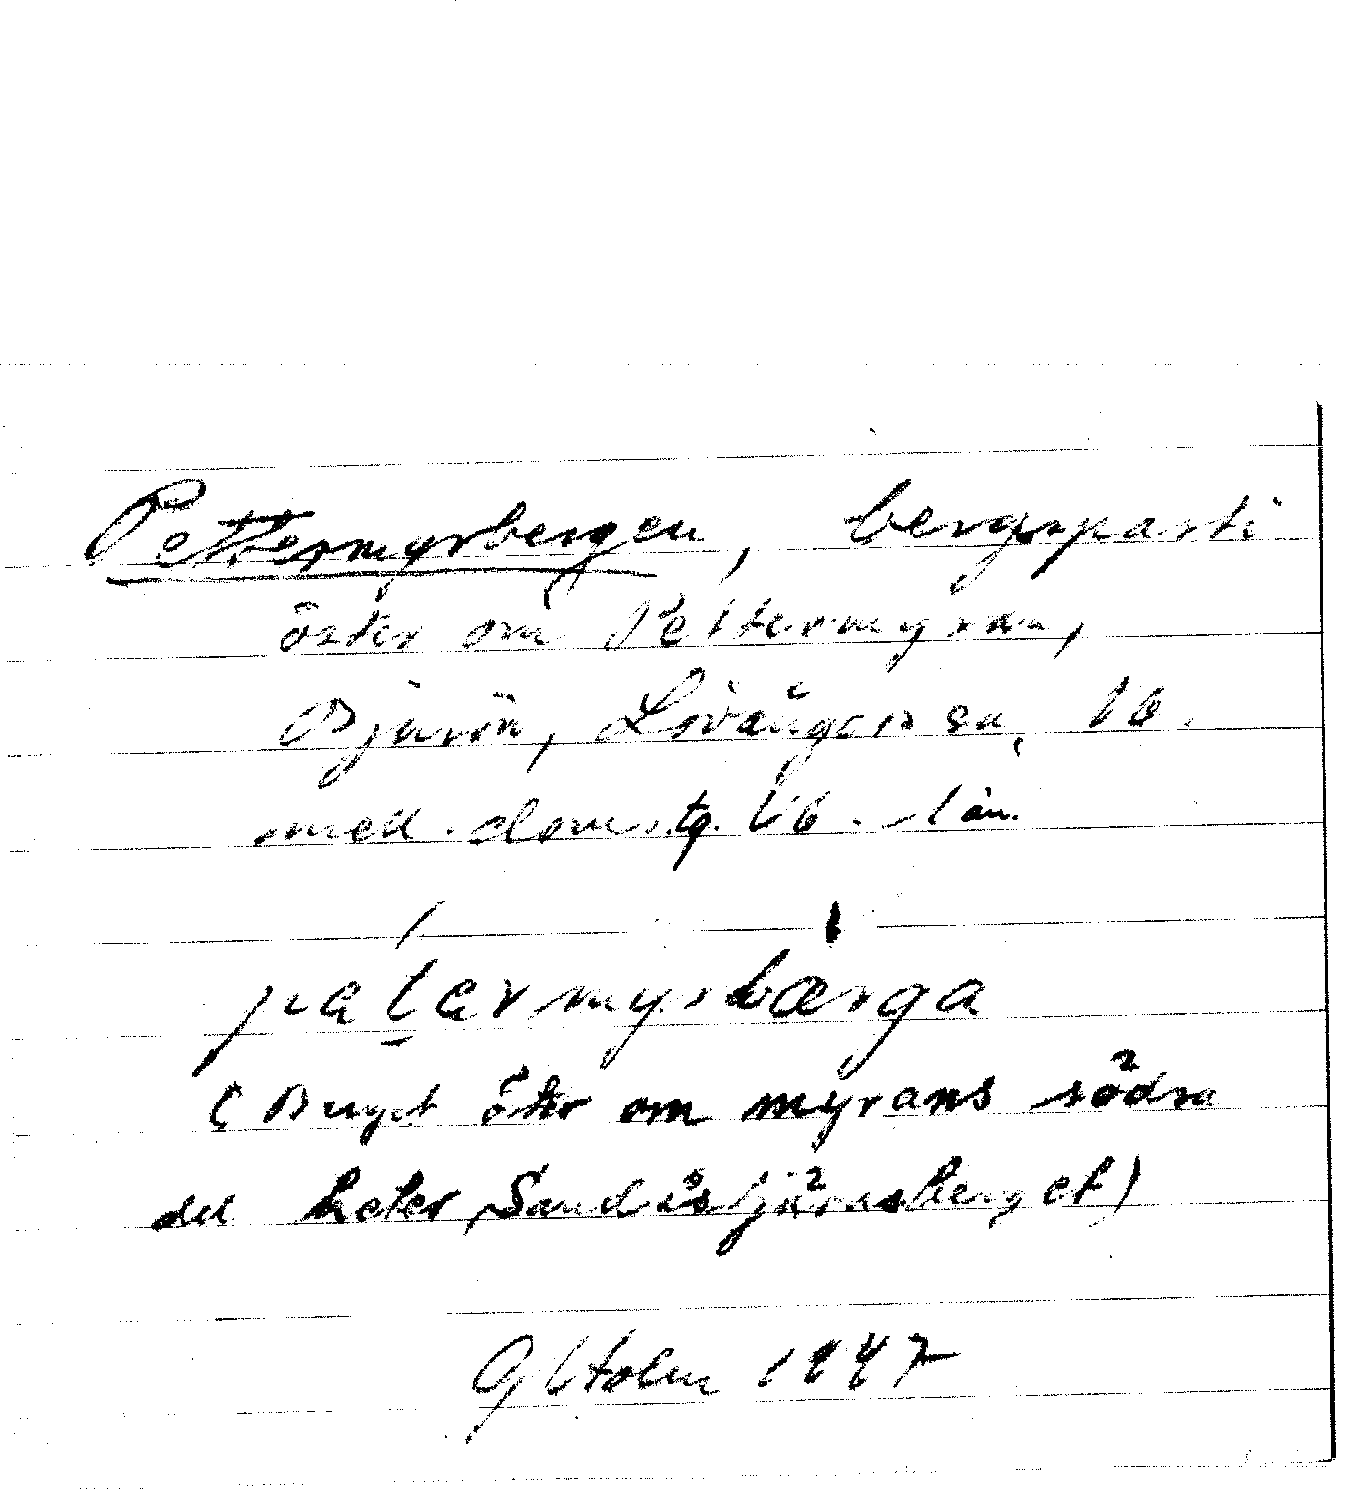 Pettermyrbergen, bergsparti
öster om Pettermyran,
Bjurön, Lövångers sn, Vb.
mell. doms.tg. Vb. län.
petermyrbærga
(Berget öster om myrans södra
del heter Sandåstjärnsberget)
G Holm 1947